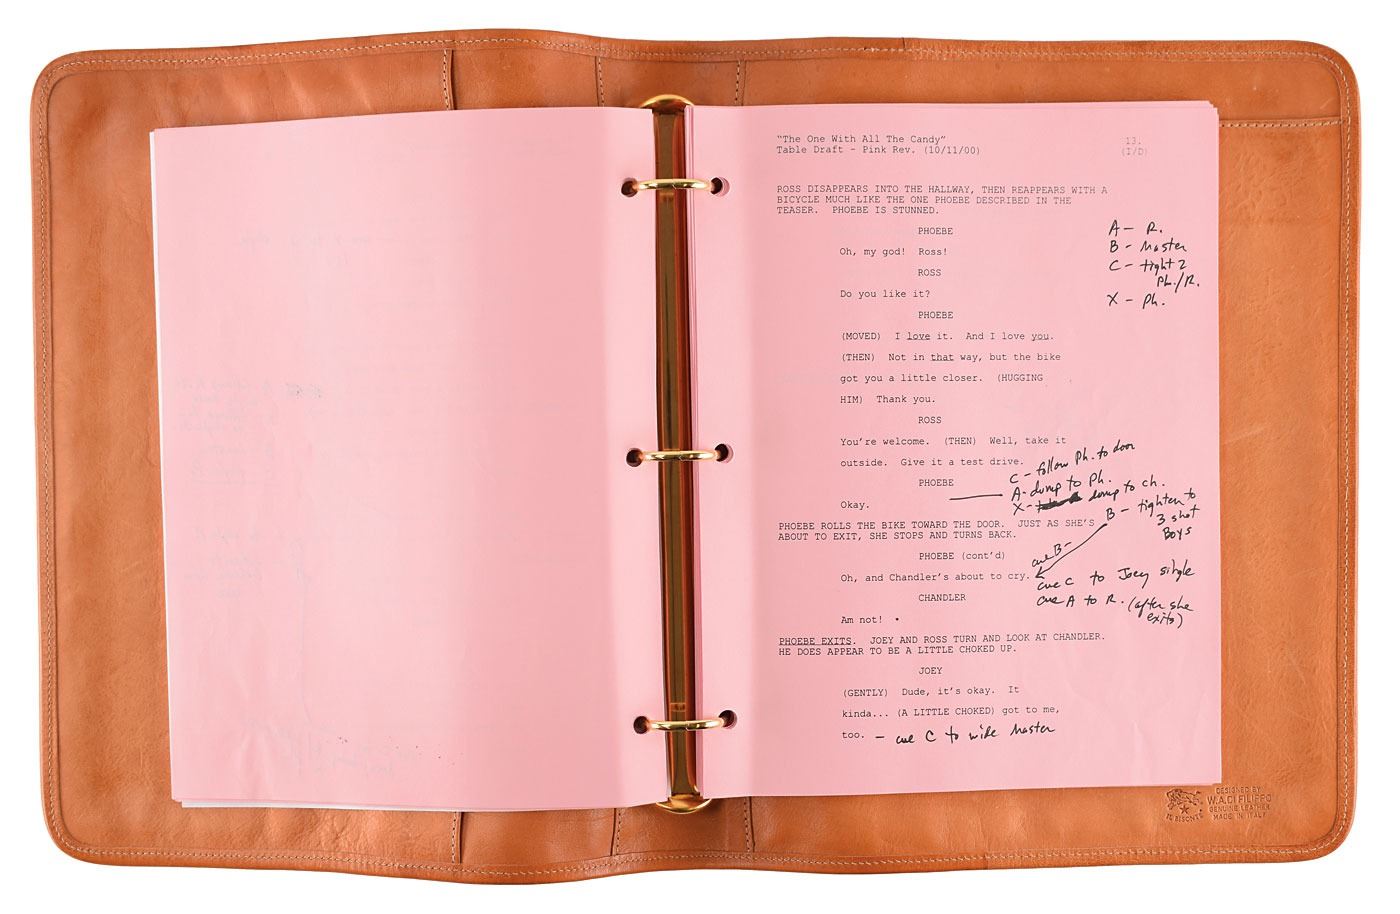 "The One With All The Candy"
Table Draft - Pink Rev. (10/11/00)
13.
(I/D)
ROSS DISAPPEARS INTO THE HALLWAY, THEN REAPPEARS WITH A
BICYCLE MUCH LIKE THE ONE PHOEBE DESCRIBED IN THE
TEASER.  PHOEBE IS STUNNED.
PHOEBE
Oh, my god!  Ross!
ROSS
Do you like it?
PHOEBE
(MOVED)  I love it.  And I love you.
(THEN)  Not in that way, but the bike
got you a little closer.  (HUGGING
HIM)  Thank you.
ROSS
You're welcome.  (THEN)  Well, take it
outside.  Give it a test drive.
PHOEBE
Okay.
PHOEBE ROLLS THE BIKE TOWARD THE DOOR.  JUST AS SHE'S
ABOUT TO EXIT, SHE STOPS AND TURNS BACK.
PHOEBE (cont'd)
Oh, and Chandler's about to cry.
CHANDLER
Am not!
PHOEBE EXITS.  JOEY AND ROSS TURN AND LOOK AT CHANDLER.
HE DOES APPEAR TO BE A LITTLE CHOKED UP.
JOEY
(GENTLY)  Dude, it's okay.  It
kinda... (A LITTLE CHOKED) got to me,
too. - cue C to wide Master
A - R.
B - Master
C - tight 2
Ph./R.
X - Ph.
C - follow Ph. to door
A - jump to Ph.
X - jump to ch.
B - tighten to
3 shot
Boys
cue B -
cue C to Joey single
cue A to R. (after she
exits)
IL BISONTE
DESIGNED BY
W.A. DI FILIPPO
GENUINE LEATHER
MADE IN ITALY